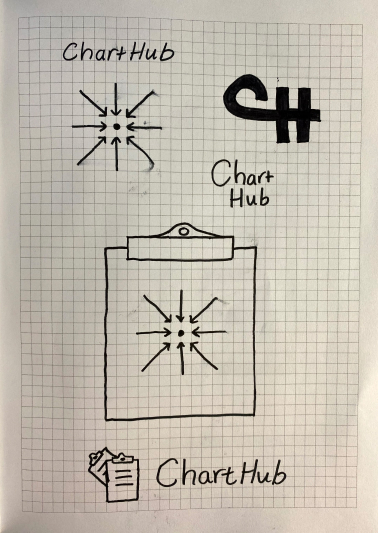 ChartHub
CH
Chart
Hub
ChartHub